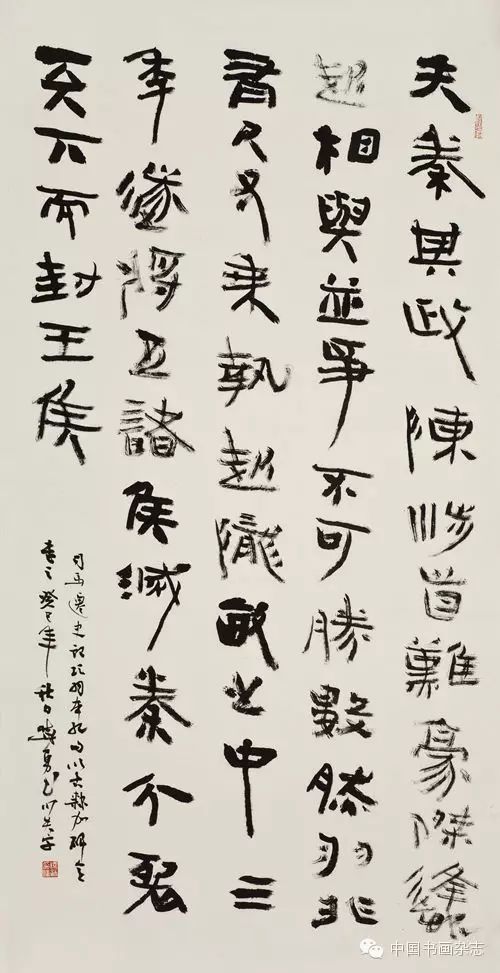 夫秦其政陳涉首難豪傑蠭
起相與並爭不可勝數然羽非
有尺寸乘埶起隴畝之中三
年遂將五諸侯滅秦分裂
天下而封王侯
司馬遷史記項羽本紀句以古隸加碑意
書之癸巳年秋日
中国书画杂志